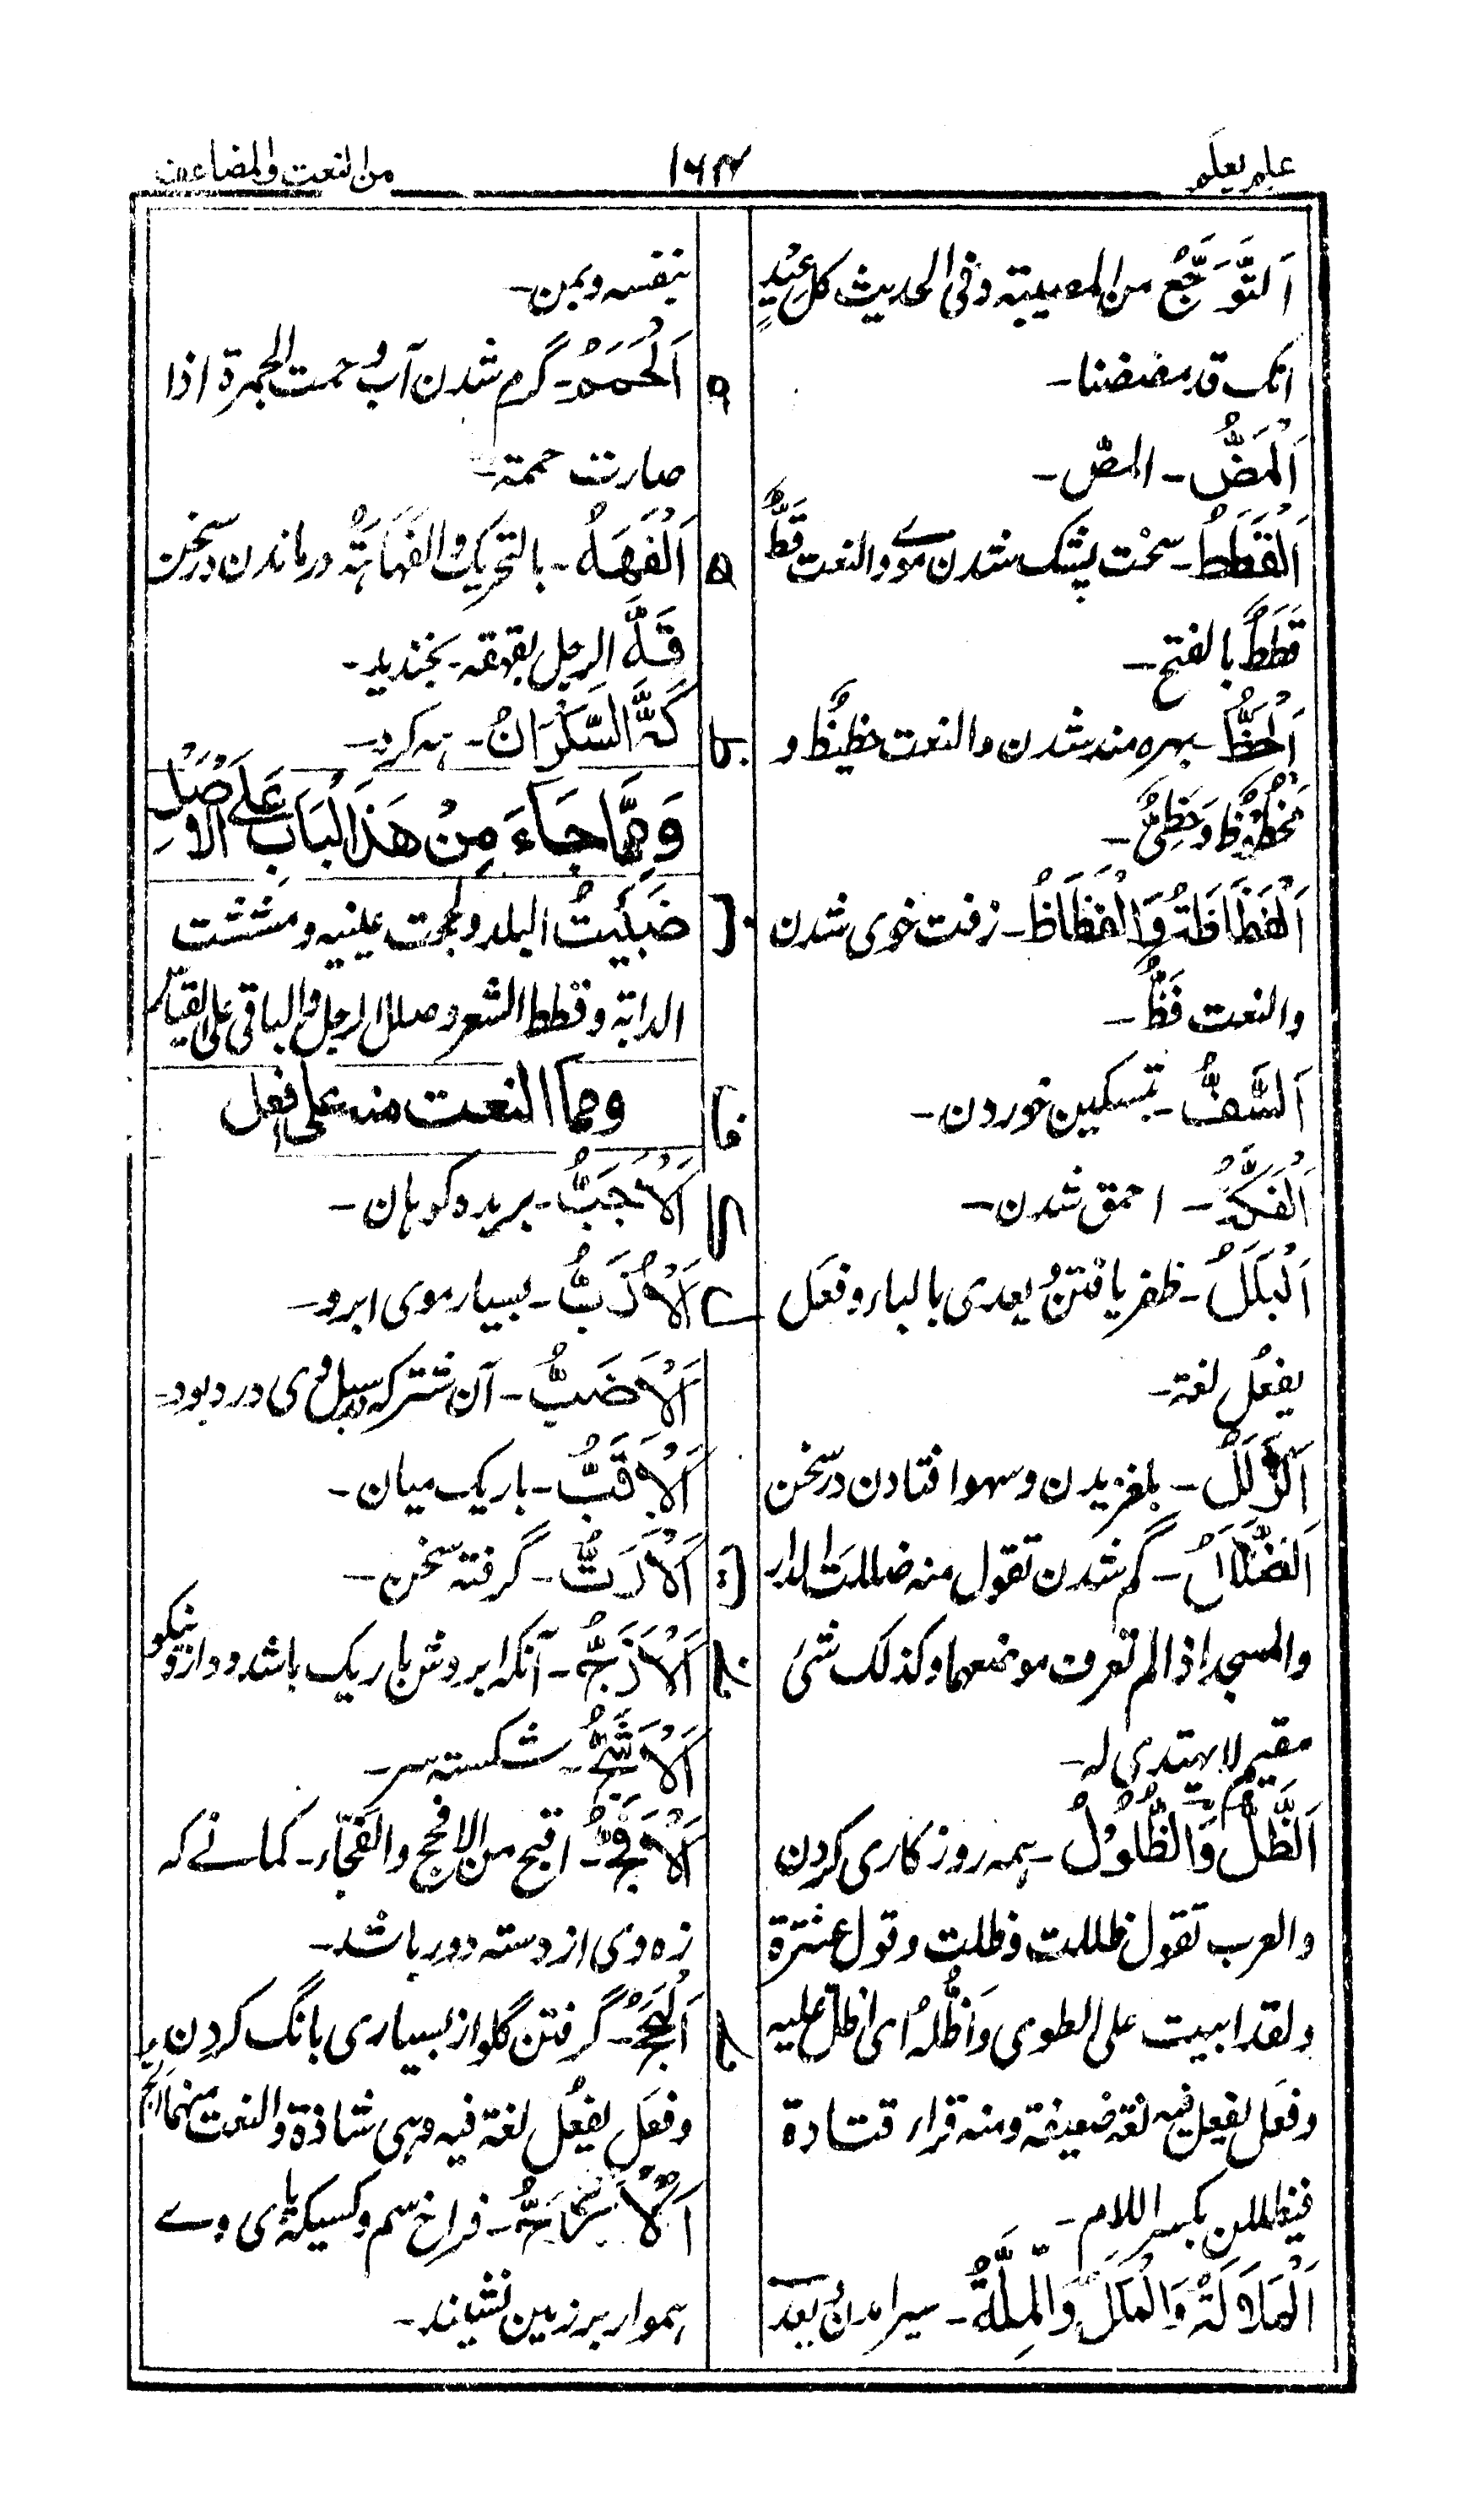 علم یعلم
۱۶۴
من النعت والمضاعف
اَلتَّوَجُّعُ من المصیبة وفی الحدیث کل عِیْدٍ
انک قد مضضنا۔
اَلْمَضُّ۔ المصّ۔
اَلْقَطَطُ۔ سخت پشک شدن موے والنعت قَطٌّ
قَطَطٌ بالفتح۔
اَلْحَظُّ۔ بهره مند شدن والنعت حظیظٌ و
مَحْظُوْظٌ وَحَظِیٌّ۔
اَلْفَظَاظَةُ وَالْفِظَاظُ۔ زفت خوی شدن
والنعت فَظٌّ۔
اَلسَّفُّ۔ تمسکین خوردن۔
اَلْفَکَّةُ۔ احمق شدن۔
اَلْبَلَلُ۔ ظفر یافتن یعدی بالباء وفعَل
یفعُل لغة۔
اَلزَّلَلُ۔ بلغزیدن وسهو افتادن در سخن
اَلضَّلَالُ۔ گم شدن تقول منه ضللت الدار
والمسجد اذا لم تعرف موضعهما وکذلک شئ
مقیم لا یهتدی له۔
اَلظَّلُّ وَالظُّلُوْلُ۔ همه روز کاری کردن
والعرب تقول ظللت وظلت وقول عنترة
ولقد ابیت علی الطوی وَاَظَلُّهُ ای اظل علیه
وفعَل یفعِل فیه لغة ضعیفة ومنه قراء قتادة
فیظللن بکسر اللام۔
اَلْمَلَالَةُ وَالْمَلَلُ وَالْمَلَّةُ۔ سیر امدن یعدے
بنفسه وبمن۔
اَلْحُمَمُ۔ گرم شدن آب و حمت الجمرة اذا
صارت حممة۔
اَلْفَهَهُ۔ بالتحریک والفَهَاهَةُ درماندن در سخن
قَهَّ الرجل بقهقه۔ بخندید۔
کَهَّ السَّکْرَانُ۔ هه کرد۔
وَمِمَّا جَاءَ مِنْ هَذَا الْبَابِ عَلَی الْاَصْلِ
ضَبَبَتُ البلد ولححت عینیه ومششت
الدابة وقطط الشعر وصلل الرجل والباقی علی القیاس
ومما النعت منه علی افعل
اَلْاَجَبُّ۔ بریده کوهان۔
اَلْاَزَبُّ۔ بسیار موی ابرو۔
اَلْاَضَبُّ۔ آن شتر که سپل وی درد بود۔
اَلْاَقَبُّ۔ باریک میان۔
اَلْاَرَتُّ۔ گرفته سخن۔
اَلْاَزَجُّ۔ آنکه ابروش باریک باشد و دراز ونیکو
اَلْاَشَجُّ۔ شکسته سر۔
اَلْاَفَجُّ۔ اقبح من الافحج والفجّاء۔ کمانے که
زه وی از دسته دور باشد۔
اَلْبَحَحُ۔ گرفتن گلو از بسیاری بانگ کردن
وفعَل یفعُل لغة فیه وهی شاذة والنعت منهما ابح
اَلْاَرَحُّ۔ فراخ سم وکسیکه پای وے
هموار بر زمین نشیند۔